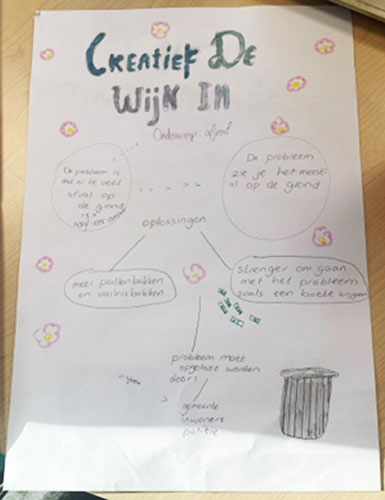 CREATIEF DE
WIJK IN
Onderwerp: afval
De probleem is
dat er te veel
afval op
de grond
is
De probleem
zie je het meest
al op de grond
oplossingen
meer pullenbakken
en vuilnisbakken
strenger om gaan
met het probleem
zoals een boete krijgen
probleem moet
opgelost worden
door:
gemeente
inwoners
politie